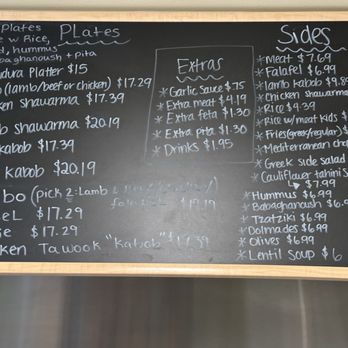 Plates
PLates
e w/ Rice,
d, hummus
baaghanoush + pita
dura Platter $15
o (lamb/beef or chicken) $17.29
en shawarma $17.39
b shawarma $20.19
kabob $17.39
kabob $20.19
bo (pick 2: Lamb
$19.19
eL $17.29
ie $17.29
ken Tawook "Kabob" $17.39
Extras
* Garlic Sauce $.75
* Extra meat $4.19
* Extra feta $1.30
* Extra pita $1.30
* Drinks $1.95
Sides
* Meat $7.69
* Falafel $6.99
* Lamb Kabob $9.8
* Chicken Shawarma
* Rice $4.39
Rice w/ meat kids $
* Fries (greek/regular) $
* Mediterranean cho
* Greek side salad
* Cauliflower tahini S
$7.99
* Hummus $6.99
* Babaghanoush $6.9
* Tzatziki $6.99
* Dolmades $6.99
* Olives $6.99
* Lentil Soup $6